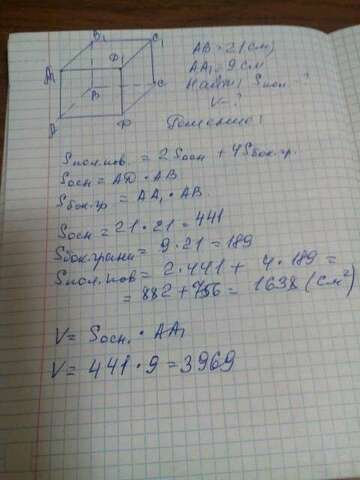 B₁ C₁
A₁ D₁
B C
A D
AB = 21 (см)
AA₁ = 9 см
Найти Sпол. - ?
V - ?
Решение:
Sпол.пов. = 2Sосн + 4Sбок.гр.
Sосн = AD · AB
Sбок.гр = AA₁ · AB
Sосн = 21 · 21 = 441
Sбок.грани = 9 · 21 = 189
Sпол.пов = 2 · 441 + 4 · 189 =
= 882 + 756 = 1638 (см²)
V = Sосн. · AA₁
V = 441 · 9 = 3969